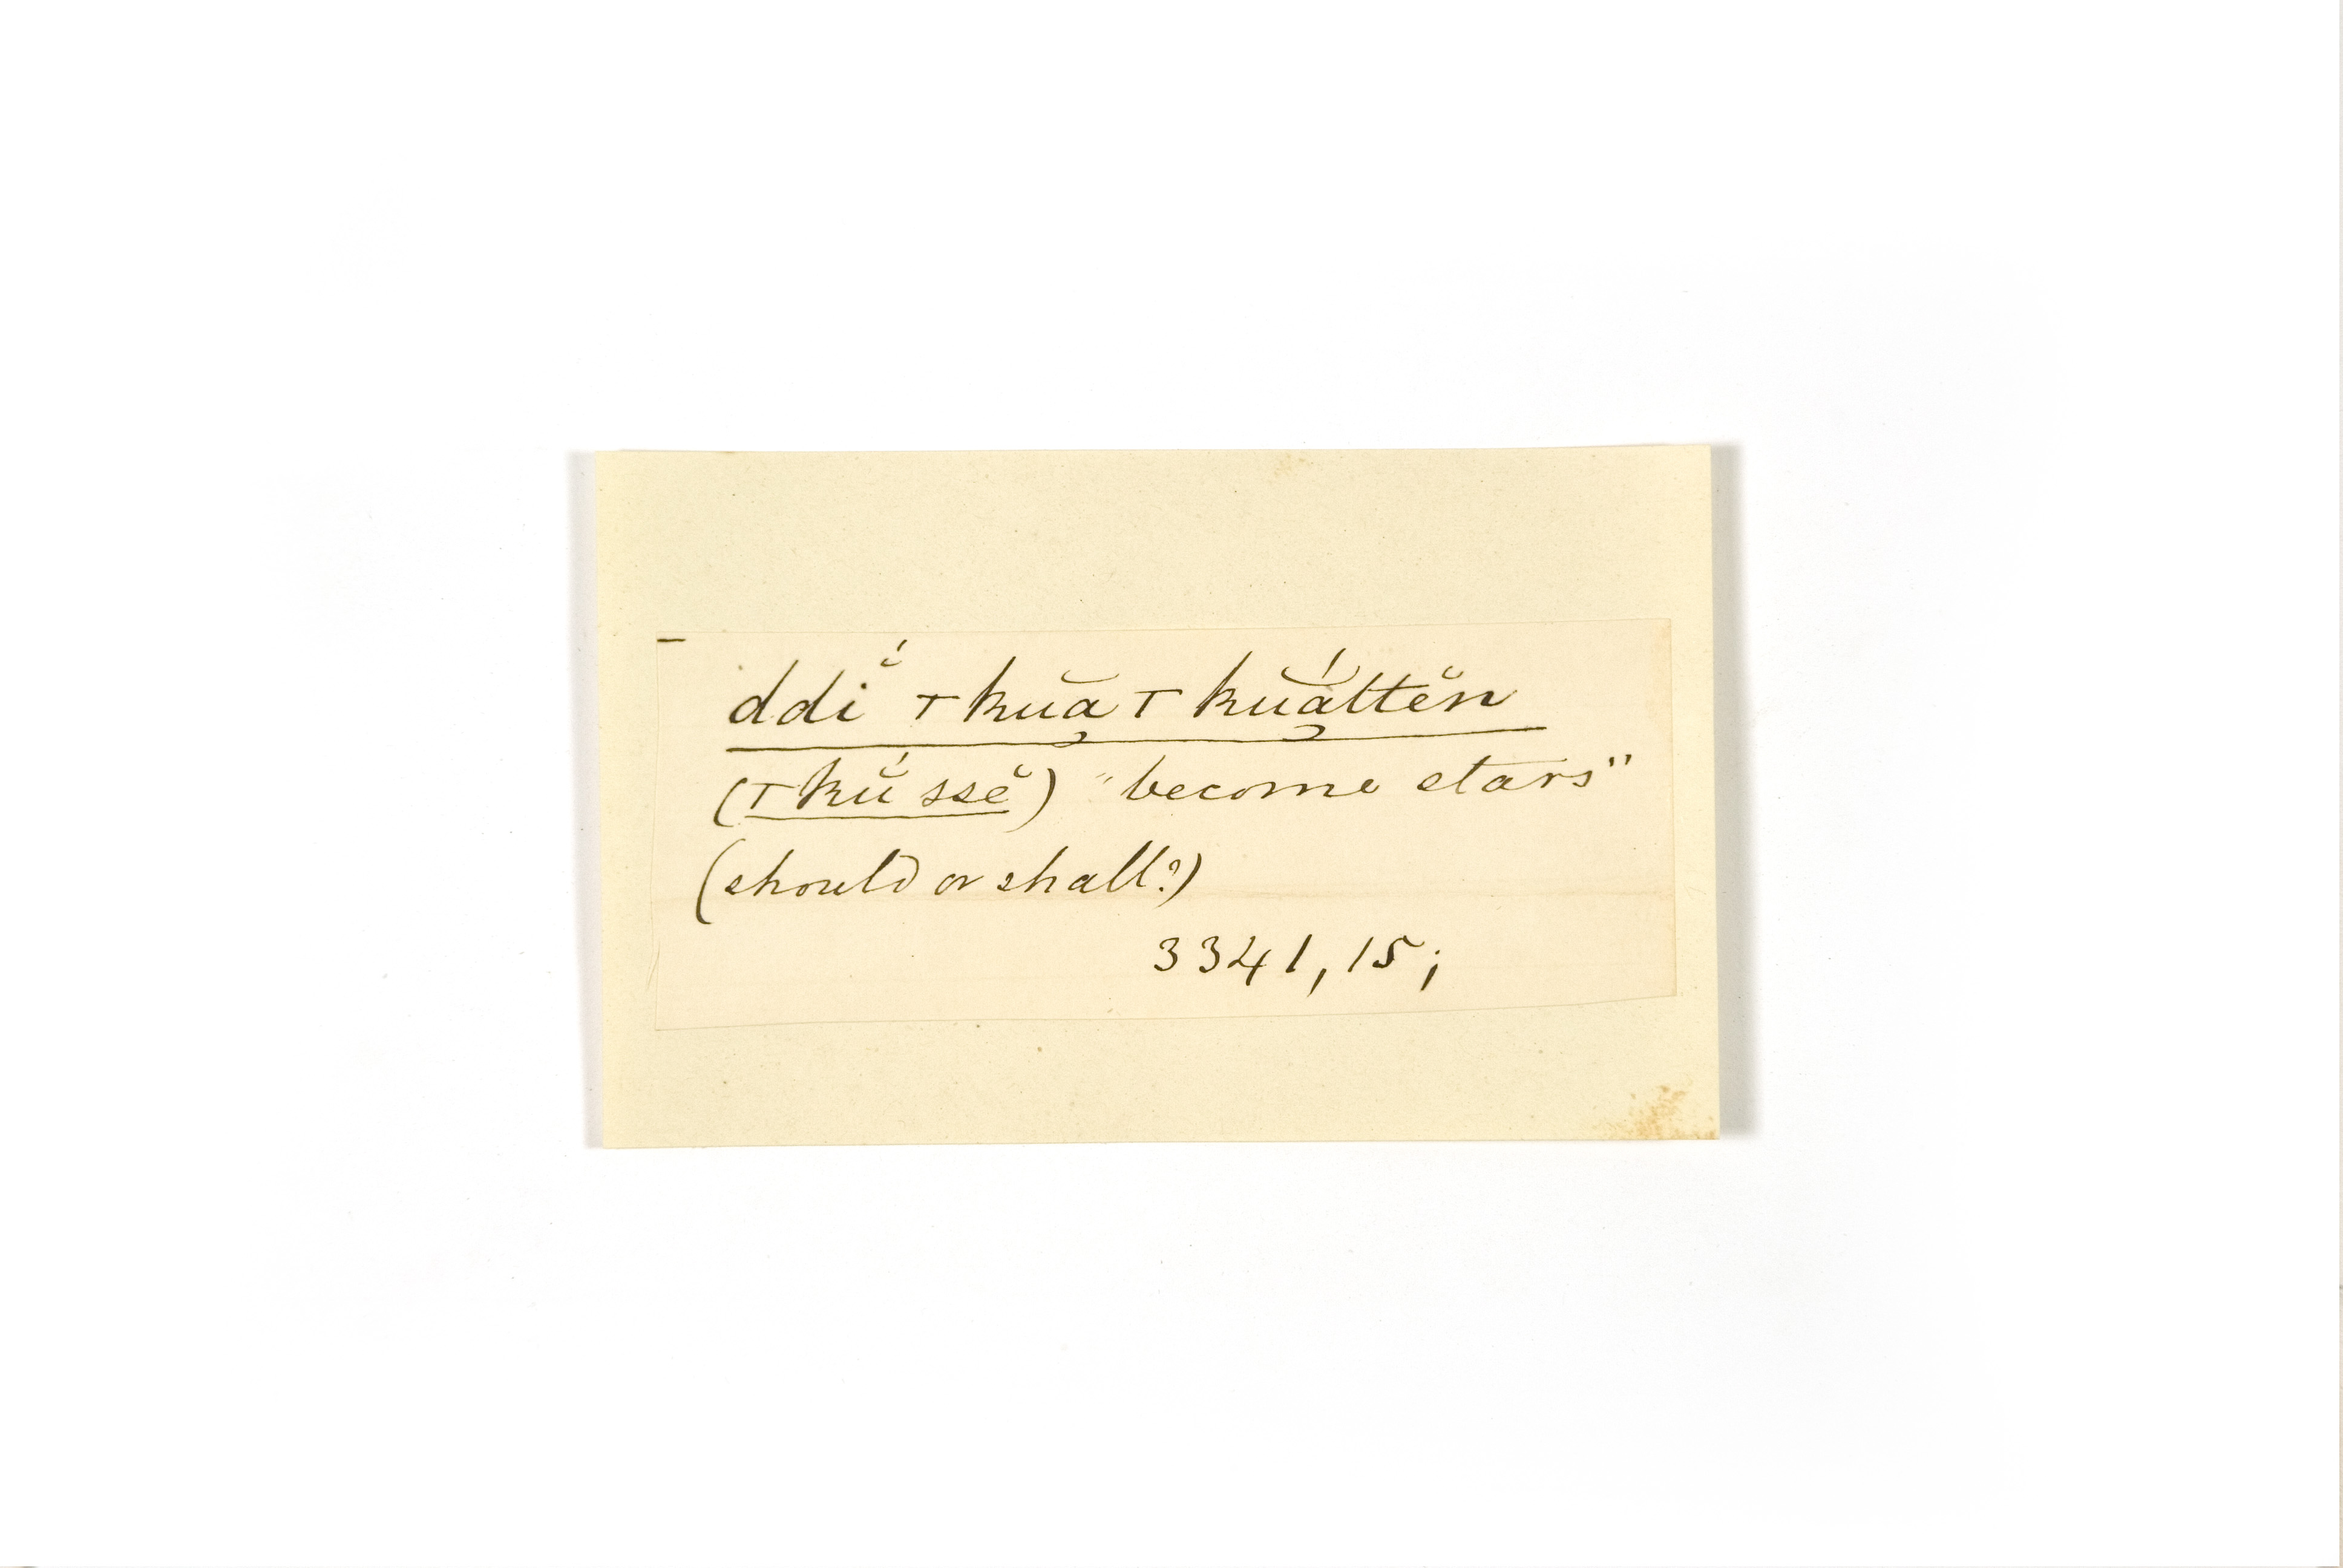 ddĭ́ ⊤kŭa̦⊤kŭá̦ttĕn
(⊤kŭ́ssĕ) "become stars"
(should or shall?)
3341, 15;